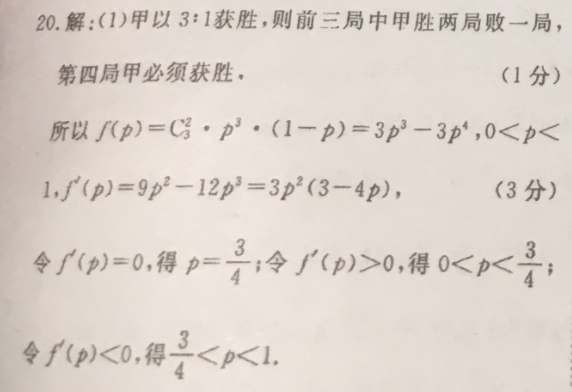 20.解:(1)甲以 3:1获胜,则前三局中甲胜两局败一局,
第四局甲必须获胜. (1分)
所以 f(p)=C₃²·p³·(1-p)=3p³-3p⁴,0<p<
1,f′(p)=9p²-12p³=3p²(3-4p), (3分)
令 f′(p)=0,得 p=3/4;令 f′(p)>0,得 0<p<3/4;
令 f′(p)<0,得3/4<p<1.